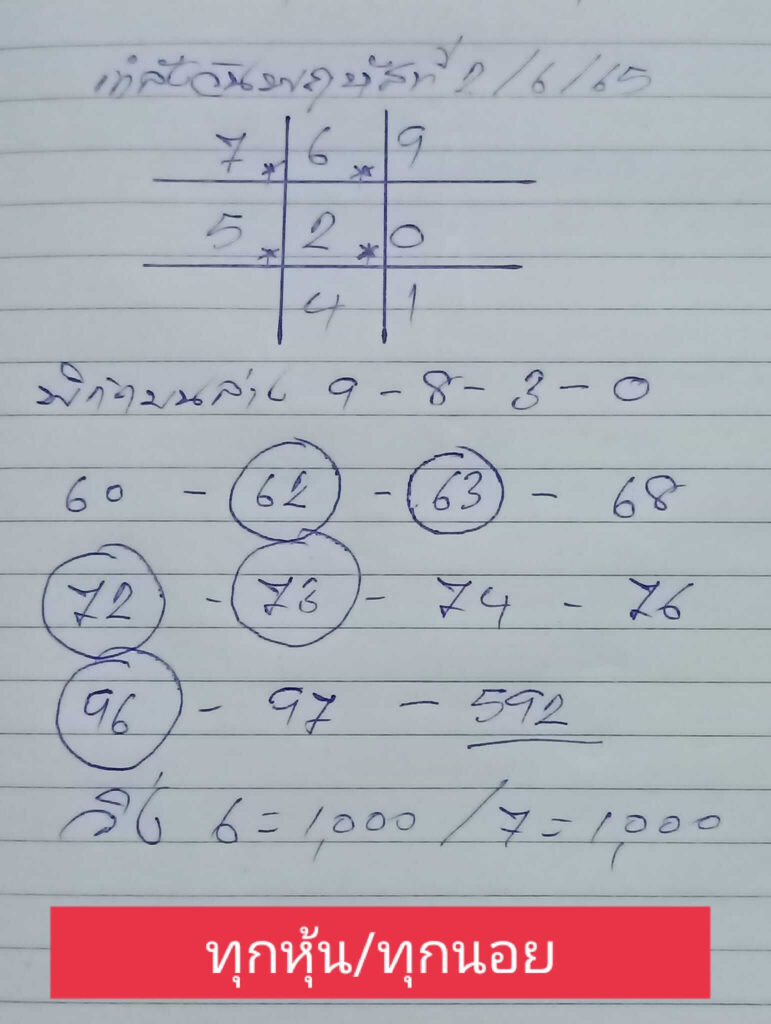 วันพฤหัสที่ 2/6/65
7 * 6 * 9
5 * 2 * 0
4 1
บนล่าง 9 - 8 - 3 - 0
60 - 62 - 63 - 68
72 - 73 - 74 - 76
96 - 97 - 592
วิ่ง 6 = 1,000 / 7 = 1,000
ทุกหุ้น/ทุกนอย